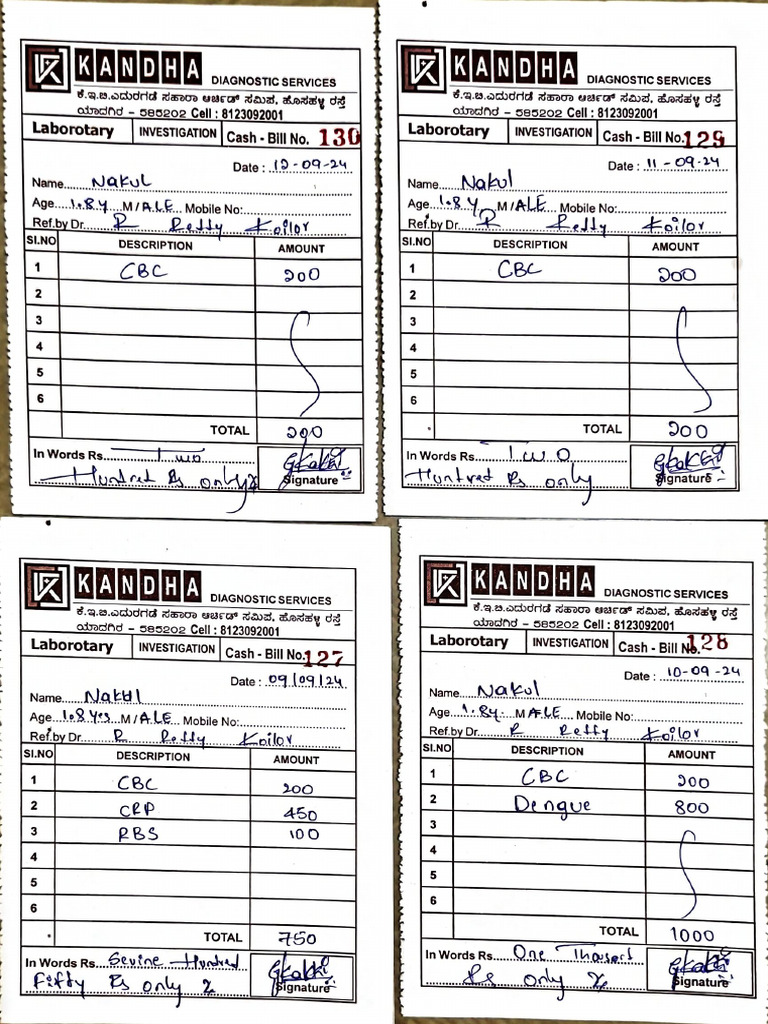 KANDHA DIAGNOSTIC SERVICES
ಕೆ.ಇ.ಬಿ.ಎದುರಗಡೆ ಸಹಾರಾ ಆರ್ಚಿಡ್ ಸಮಿಪ, ಹೊಸಹಳ್ಳಿ ರಸ್ತೆ
ಯಾದಗಿರ - 585202 Cell : 8123092001
Laborotary INVESTIGATION Cash - Bill No. 130
Date : 12-09-24
Name Nakul
Age 1.8 y M/ALE Mobile No:
Ref.by Dr. R Retty Koilor
SI.NO DESCRIPTION AMOUNT
1 CBC 200
2
3
4
5
6
TOTAL 200
In Words Rs Two
Hundred Rs only
Signature
KANDHA DIAGNOSTIC SERVICES
ಕೆ.ಇ.ಬಿ.ಎದುರಗಡೆ ಸಹಾರಾ ಆರ್ಚಿಡ್ ಸಮಿಪ, ಹೊಸಹಳ್ಳಿ ರಸ್ತೆ
ಯಾದಗಿರ - 585202 Cell : 8123092001
Laborotary INVESTIGATION Cash - Bill No. 129
Date : 11-09-24
Name Nakul
Age 1.8 y M/ALE Mobile No:
Ref.by Dr. R Retty Koilor
SI.NO DESCRIPTION AMOUNT
1 CBC 200
2
3
4
5
6
TOTAL 200
In Words Rs Two
Huntred Rs only
Signature
KANDHA DIAGNOSTIC SERVICES
ಕೆ.ಇ.ಬಿ.ಎದುರಗಡೆ ಸಹಾರಾ ಆರ್ಚಿಡ್ ಸಮಿಪ, ಹೊಸಹಳ್ಳಿ ರಸ್ತೆ
ಯಾದಗಿರ - 585202 Cell : 8123092001
Laborotary INVESTIGATION Cash - Bill No. 127
Date : 09/09/24
Name Nakul
Age 1.8 yrs M/ALE Mobile No:
Ref.by Dr. R Retty Koilor
SI.NO DESCRIPTION AMOUNT
1 CBC 200
2 CRP 450
3 RBS 100
4
5
6
TOTAL 750
In Words Rs Sevine Hundred
Fifty Rs only
Signature
KANDHA DIAGNOSTIC SERVICES
ಕೆ.ಇ.ಬಿ.ಎದುರಗಡೆ ಸಹಾರಾ ಆರ್ಚಿಡ್ ಸಮಿಪ, ಹೊಸಹಳ್ಳಿ ರಸ್ತೆ
ಯಾದಗಿರ - 585202 Cell : 8123092001
Laborotary INVESTIGATION Cash - Bill No. 128
Date : 10-09-24
Name Nakul
Age 1.8y. M/ALE Mobile No:
Ref.by Dr. R Retty Koilor
SI.NO DESCRIPTION AMOUNT
1 CBC 200
2 Dengue 800
3
4
5
6
TOTAL 1000
In Words Rs One Thousand
Rs only
Signature